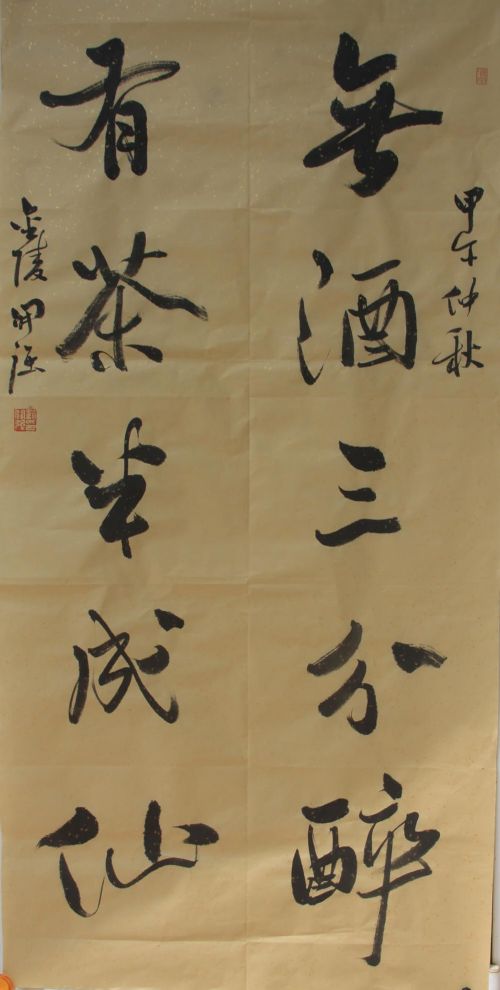 甲午仲秋
無酒三分醉
有茶半成仙
金陵